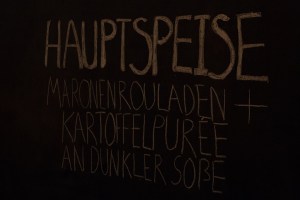 HAUPTSPEISE
MARONENROULADEN +
KARTOFFELPURÉE
AN DUNKLER SOßE